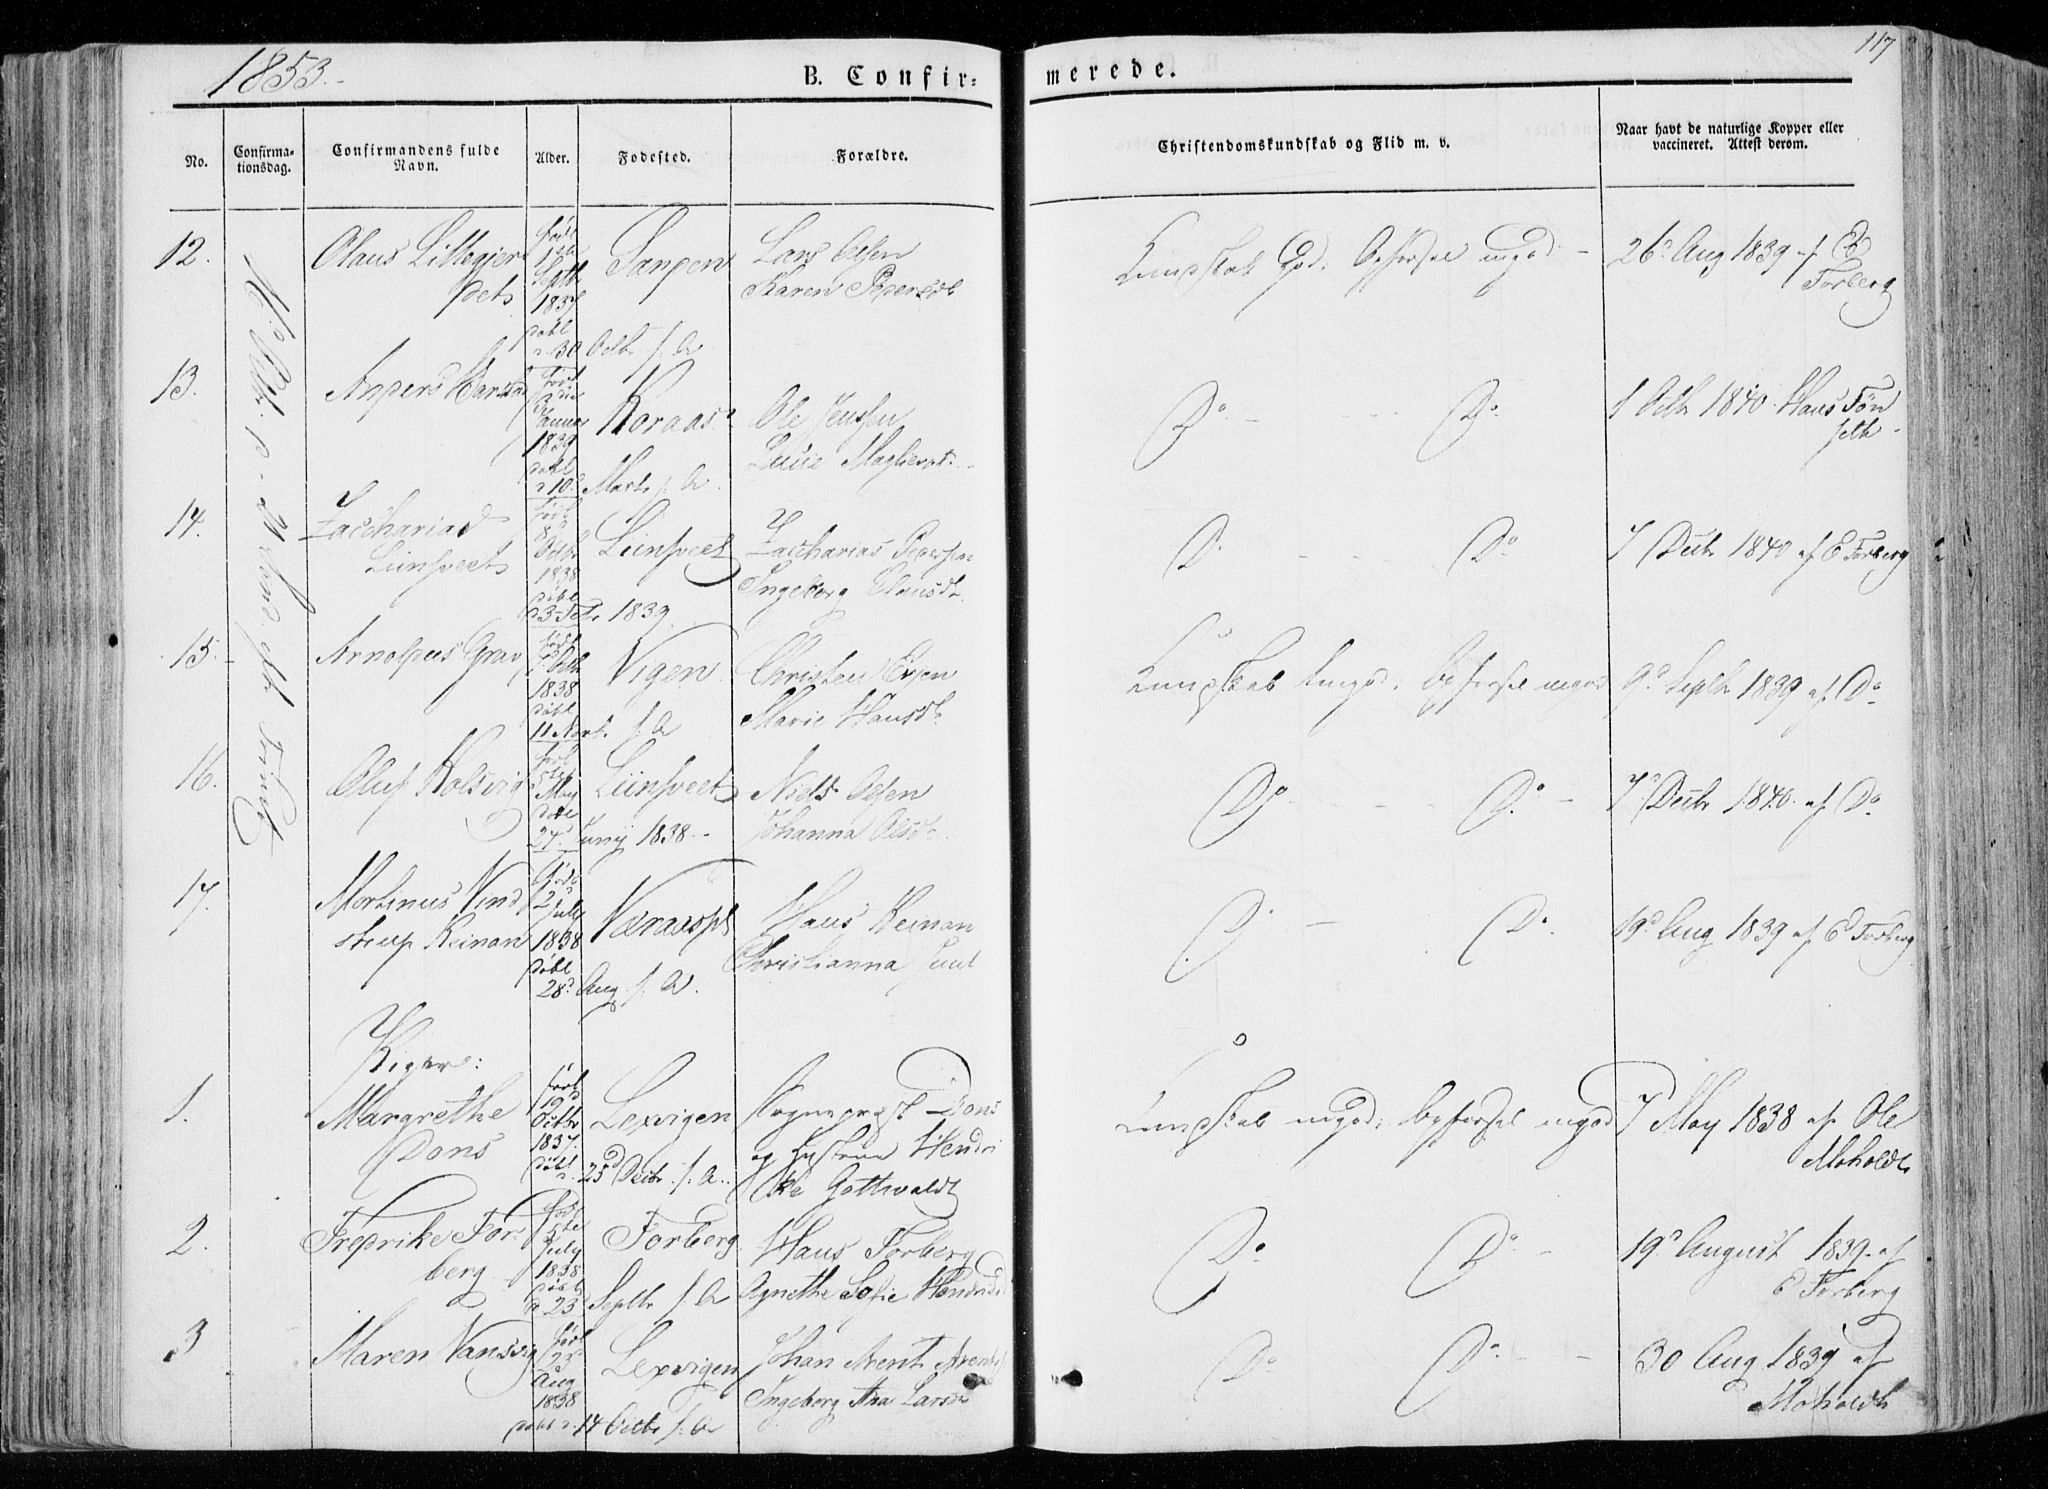 1853.
B. Confir=
merede.
117
No.
Confirma-
tionsdag.
Confirmandens fulde
Navn.
Alder.
Fødested.
Forældre.
Christendomskundskab og Flid m. v.
Naar havt de naturlige Kopper eller
vaccineret. Attest derom.
12.
Olaus Lillegjer
født
Septb
1837
døbt
d. 30 Octbr s. A
Lars Olsen
Karen Pedersdt
Kundskab God. Opførsel mgod
26d Aug 1839 af E
Forberg
13.
Anders
født
Januar
1839
døbt
d 10 Marts s. A
Koraas
Ole Jenssen
Do
Do
1 Octbr 1840. Hans Tøn
seth
14.
Zacharias
Liinsveet
født
8d
Octbr
1838
døbt
d 3 Feb. 1839.
Liinsveet
Zacharias Pedersen
Ingeborg Olausdt.
Do
Do
7 Decbr 1840 af E Forberg
15.
Arnoldus Grav
født
Octbr
1838
døbt
11 Novb. s. A
Vigen
Christen
Marie Hansdt.
Kundskab Opførsel mgod
9d Septbr 1839 af Do
16.
Oluf Kolsvig
født
5te
May
døbt
27d Junij 1838
Liinsveet
Niels Olsen
Johanna Olsdt.
Do
Do
7d Decbr 1840. af Do
17.
Martinus Vind
strup Keinan
født
2d
July
1838
døbt
28d Aug. s. A.
Hans Keinan
Christianna Juul
Do
Do
19d Aug 1839 af E Forberg
Piger:
1.
Margrethe
Dons
født
19d
Octbr
1837.
døbt
d. 25 Decbr. s. A.
Lexvigen
Sognepræst Dons
og Hustrue Hendri
kke Gottwaldt
Kundskab mgod: Opførsel mgod
7 May 1838 af Ole
Moholdt
2.
Fredrike For
berg
født
5te
July
1838
døbt
d 23 Septbr s. A
Forberg
Hans Forberg
Agnethe Sofie Hendriksd
Do
Do
19d August 1839. af
E Forberg
3
Maren Vansvig
født
25d
Aug
1838
døbt d. 14 Octbr s. A
Lexvigen
Johan Arent Arents
Ingeborg Ana Larsdt
Do
Do
30 Aug. 1839 af
Moholdt